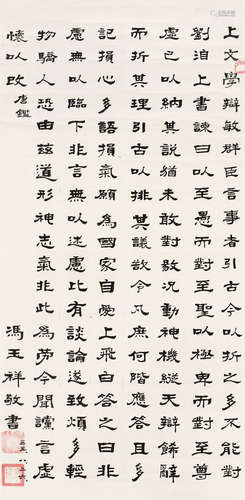 上文學辯敏群臣言事者引古以折之多不能對
劉洎上書諫曰以至愚而對至聖以極卑而對
虛己以納其說猶未敢對敭況動神機縱天辯飾辭
而折其理引古以排其議欲令凡庶何階應答且多
記損心多語損氣願為國家自愛上飛白答之曰非
慮無以臨下非言無以述慮比有談論遂致煩多輕
物驕人恐由茲道形神志氣非此為勞今聞讜言虛
懷以改 唐鑑 馮玉祥敬書